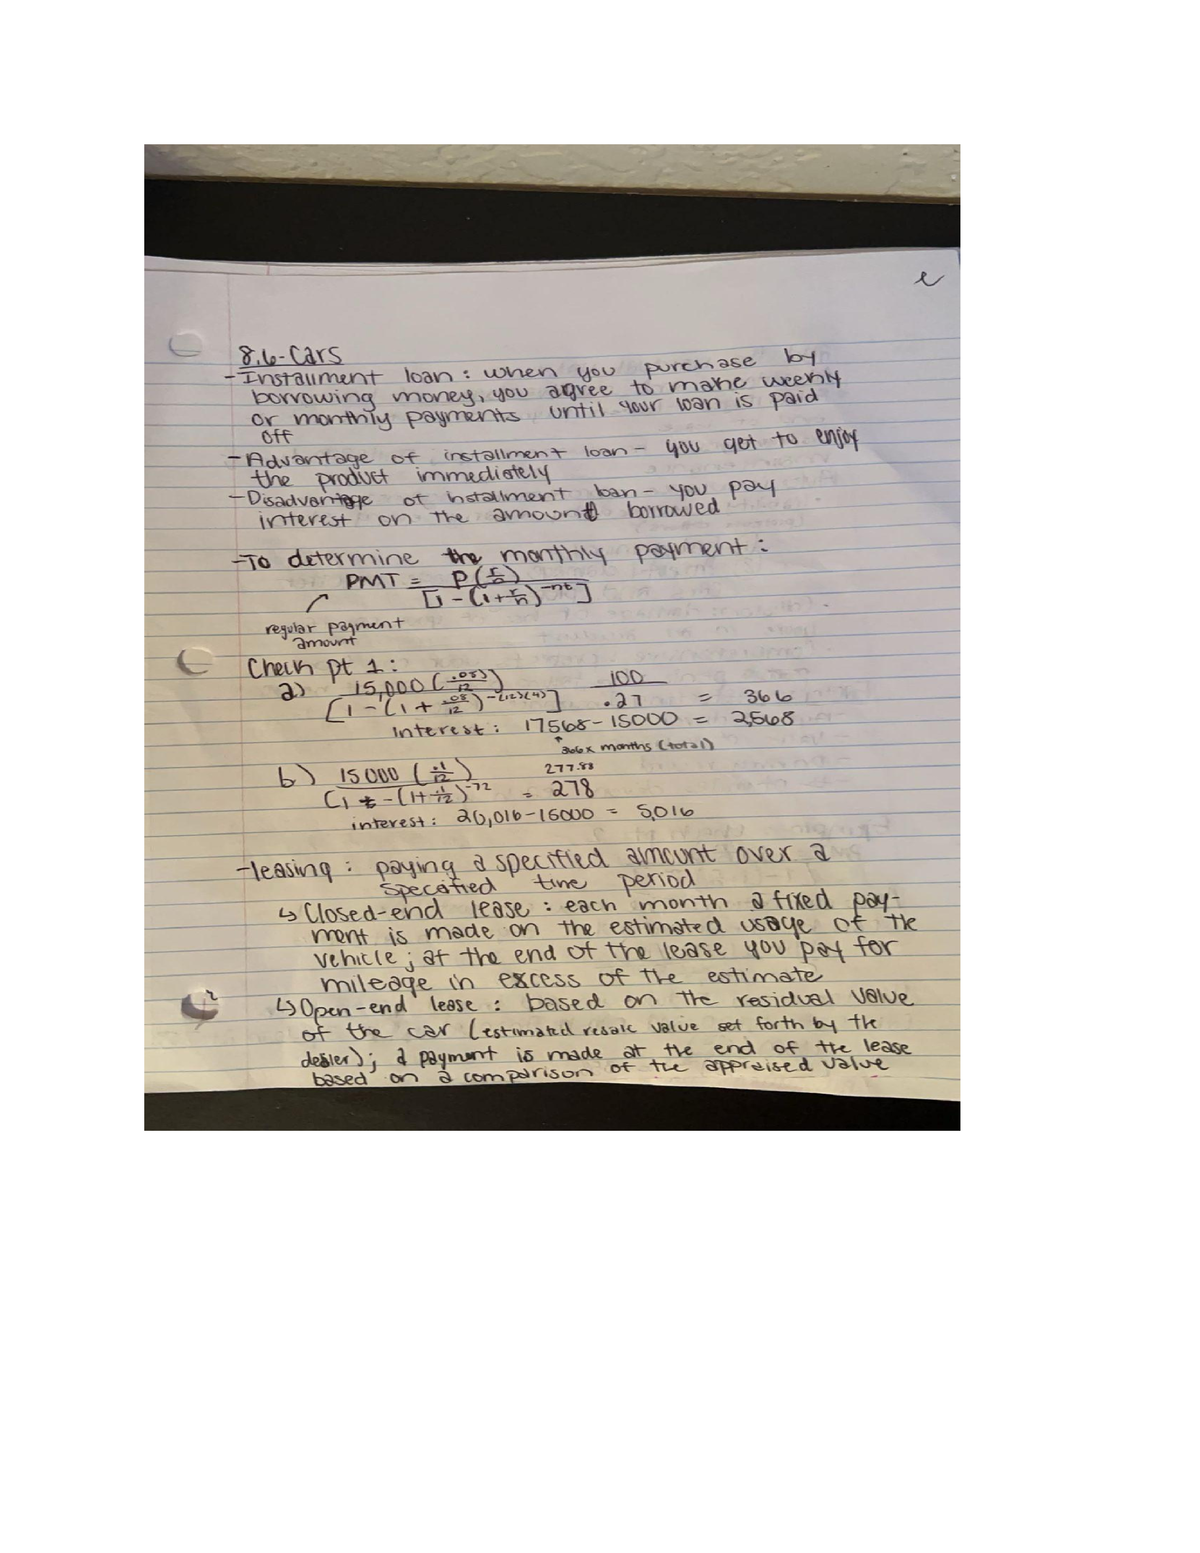 e
8.6-Cars
-Installment loan: when you purchase by
borrowing money, you agree to make weekly
or monthly payments until your loan is paid
off
-Advantage of installment loan- you get to enjoy
the product immediately
-Disadvantage of installment loan- you pay
interest on the amount borrowed
-To determine the monthly payment:
PMT = P(r/n) / [1-(1+r/n)^-nt]
regular payment
amount
Check pt 1:
a) 15,000(.08/12) / [1-(1+.08/12)^-(12)(4)] 100 / .27 = 366
interest: 17568-15000 = 2,568
366x months (total)
b) 15000(.1/12) / (1-(1+.1/12)^-72 277.88 = 278
interest: 20,016-15000 = 5,016
-leasing: paying a specified amount over a
specified time period
↳ Closed-end lease: each month a fixed pay-
ment is made on the estimated usage of the
vehicle; at the end of the lease you pay for
mileage in excess of the estimate
↳Open-end lease: based on the residual value
of the car (estimated resale value set forth by the
dealer); a payment is made at the end of the lease
based on a comparison of the appraised value